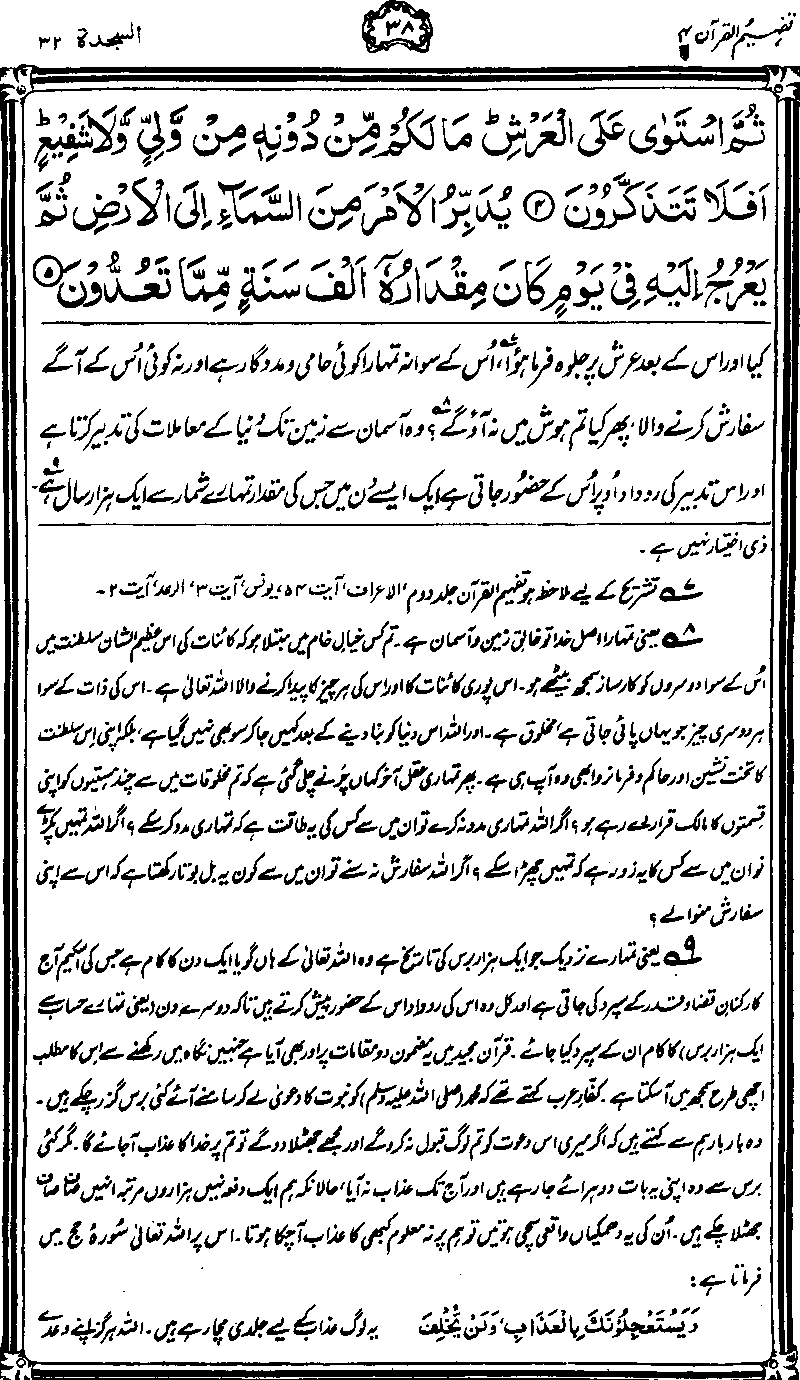 تفہیم القرآن ۴
۳۸
السجدۃ ۳۲
ثُمَّ اسْتَوٰى عَلَى الْعَرْشِ ؕ مَا لَكُمْ مِّنْ دُوْنِهٖ مِنْ وَّلِيٍّ وَّلَا شَفِيْعٍ ؕ
اَفَلَا تَتَذَكَّرُوْنَ ﴿۴﴾ يُدَبِّرُ الْاَمْرَ مِنَ السَّمَآءِ اِلَى الْاَرْضِ ثُمَّ
يَعْرُجُ اِلَيْهِ فِيْ يَوْمٍ كَانَ مِقْدَارُهٗۤ اَلْفَ سَنَةٍ مِّمَّا تَعُدُّوْنَ ﴿۵﴾
کیا اور اس کے بعد عرش پر جلوہ فرما ہوا،۷ اُس کے سوا نہ تمہارا کوئی حامی و مددگار ہے اور نہ کوئی اُس کے آگے
سفارش کرنے والا، پھر کیا تم ہوش میں نہ آؤ گے۸؟ وہ آسمان سے زمین تک دُنیا کے معاملات کی تدبیر کرتا ہے
اور اس تدبیر کی روداد اُوپر اُس کے حضور جاتی ہے ایک ایسے دن میں جس کی مقدار تمہارے شمار سے ایک ہزار سال ہے۹۔
ذی اختیار نہیں ہے۔
۷ تشریح کے لیے ملاحظہ ہو تفہیم القرآن جلد دوم، الاعراف، آیت ۵۴، یونس، آیت ۳، الرعد، آیت ۲۔
۸ یعنی تمہارا اصل خدا تو خالقِ زمین و آسمان ہے۔ تم کس خیالِ خام میں مبتلا ہو کہ کائنات کی اس عظیم الشان سلطنت میں
اُس کے سوا دوسروں کو کارساز سمجھ بیٹھے ہو۔ اس پوری کائنات کا اور اس کی ہر چیز کا پیدا کرنے والا اللہ تعالیٰ ہے۔ اس کی ذات کے سوا
ہر دوسری چیز جو یہاں پائی جاتی ہے، مخلوق ہے۔ اور اللہ اس دنیا کو بنا دینے کے بعد کہیں جا کر سو بھی نہیں گیا ہے، بلکہ اپنی اِس سلطنت
کا تخت نشین اور حاکم و فرمانروا بھی وہ آپ ہی ہے۔ پھر تمہاری عقل آخر کہاں چرنے چلی گئی ہے کہ تم مخلوقات میں سے چند ہستیوں کو اپنی
قسمتوں کا مالک قرار دے رہے ہو؟ اگر اللہ تمہاری مدد نہ کرے تو ان میں سے کس کی یہ طاقت ہے کہ تمہاری مدد کر سکے؟ اگر اللہ تمہیں پکڑے
تو ان میں سے کس کا یہ زور ہے کہ تمہیں چھڑا سکے؟ اگر اللہ سفارش نہ سنے تو ان میں سے کون یہ بل بوتا رکھتا ہے کہ اس سے اپنی
سفارش منوا لے؟
۹ یعنی تمہارے نزدیک جو ایک ہزار برس کی تاریخ ہے وہ اللہ تعالیٰ کے ہاں گویا ایک دن کا کام ہے جس کی اسکیم آج
کارکنانِ قضا و قدر کے سپرد کی جاتی ہے اور کل وہ اس کی روداد اس کے حضور پیش کرتے ہیں تاکہ دوسرے دن (یعنی تمہارے حساب سے
ایک ہزار برس) کا کام ان کے سپرد کیا جائے۔ قرآن مجید میں یہ مضمون دو مقامات پر اور بھی آیا ہے جنہیں نگاہ میں رکھنے سے اِس کا مطلب
اچھی طرح سمجھ میں آ سکتا ہے۔ کفارِ عرب کہتے تھے کہ محمد (صلی اللہ علیہ وسلم) کو نبوت کا دعویٰ لے کر سامنے آئے کئی برس گزر چکے ہیں۔
وہ بار بار ہم سے کہتے ہیں کہ اگر میری اس دعوت کو تم لوگ قبول نہ کرو گے اور مجھے جھٹلا دو گے تو تم پر خدا کا عذاب آ جائے گا۔ مگر کئی
برس سے وہ اپنی یہ بات دوہرائے جا رہے ہیں اور آج تک عذاب نہ آیا، حالانکہ ہم ایک دفعہ نہیں ہزاروں مرتبہ انہیں صاف صاف
جھٹلا چکے ہیں۔ اُن کی یہ دھمکیاں واقعی سچی ہوتیں تو ہم پر نہ معلوم کبھی کا عذاب آ چکا ہوتا۔ اس پر اللہ تعالیٰ سُورۂ حج میں
فرماتا ہے:
وَيَسْتَعْجِلُوْنَكَ بِالْعَذَابِ، وَلَنْ يُّخْلِفَ یہ لوگ عذاب کے لیے جلدی مچا رہے ہیں۔ اللہ ہرگز اپنے وعدے